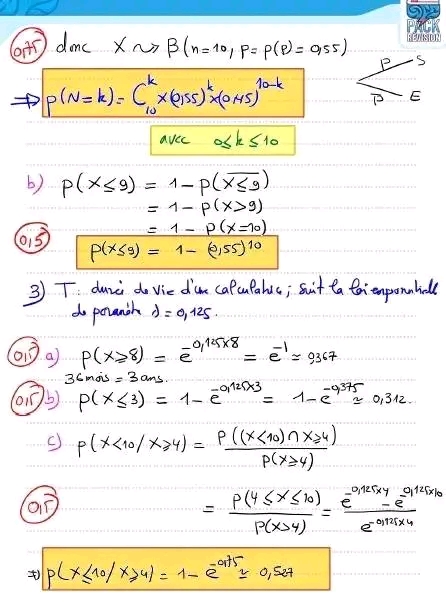 PACK
REVISION
0,75 donc X ~> B(n=10, p=p(P)=0,55)
P S
P̄ E
=> p(N=k) = C₁₀ᵏ x(0,55)ᵏx(0,45)¹⁰⁻ᵏ
avec 0≤k≤10
b) p(X≤9) = 1-p(X̅≤̅9̅)
= 1-p(X>9)
= 1-p(X=10)
0,5
p(X≤9) = 1-(0,55)¹⁰
3) T: durée de vie d'une calculatrice; suit la loi exponentielle
de paramètre λ=0,125.
0,5 a) p(X≥8) = e^-0,125x8 = e^-1 ≃ 0,367
36 mois = 3 ans.
0,5 b) p(X≤3) = 1-e^-0,125x3 = 1-e^-0,375 ≃ 0,312.
c) p(X<10/X≥4) = p((X<10)∩X≥4) / p(X≥4)
0,5
= p(4≤X≤10) / p(X>4) = e^-0,125x4 - e^-0,125x10 / e^-0,125x4
=> p(X≤10/X≥4) = 1-e^-0,75 ≃ 0,527